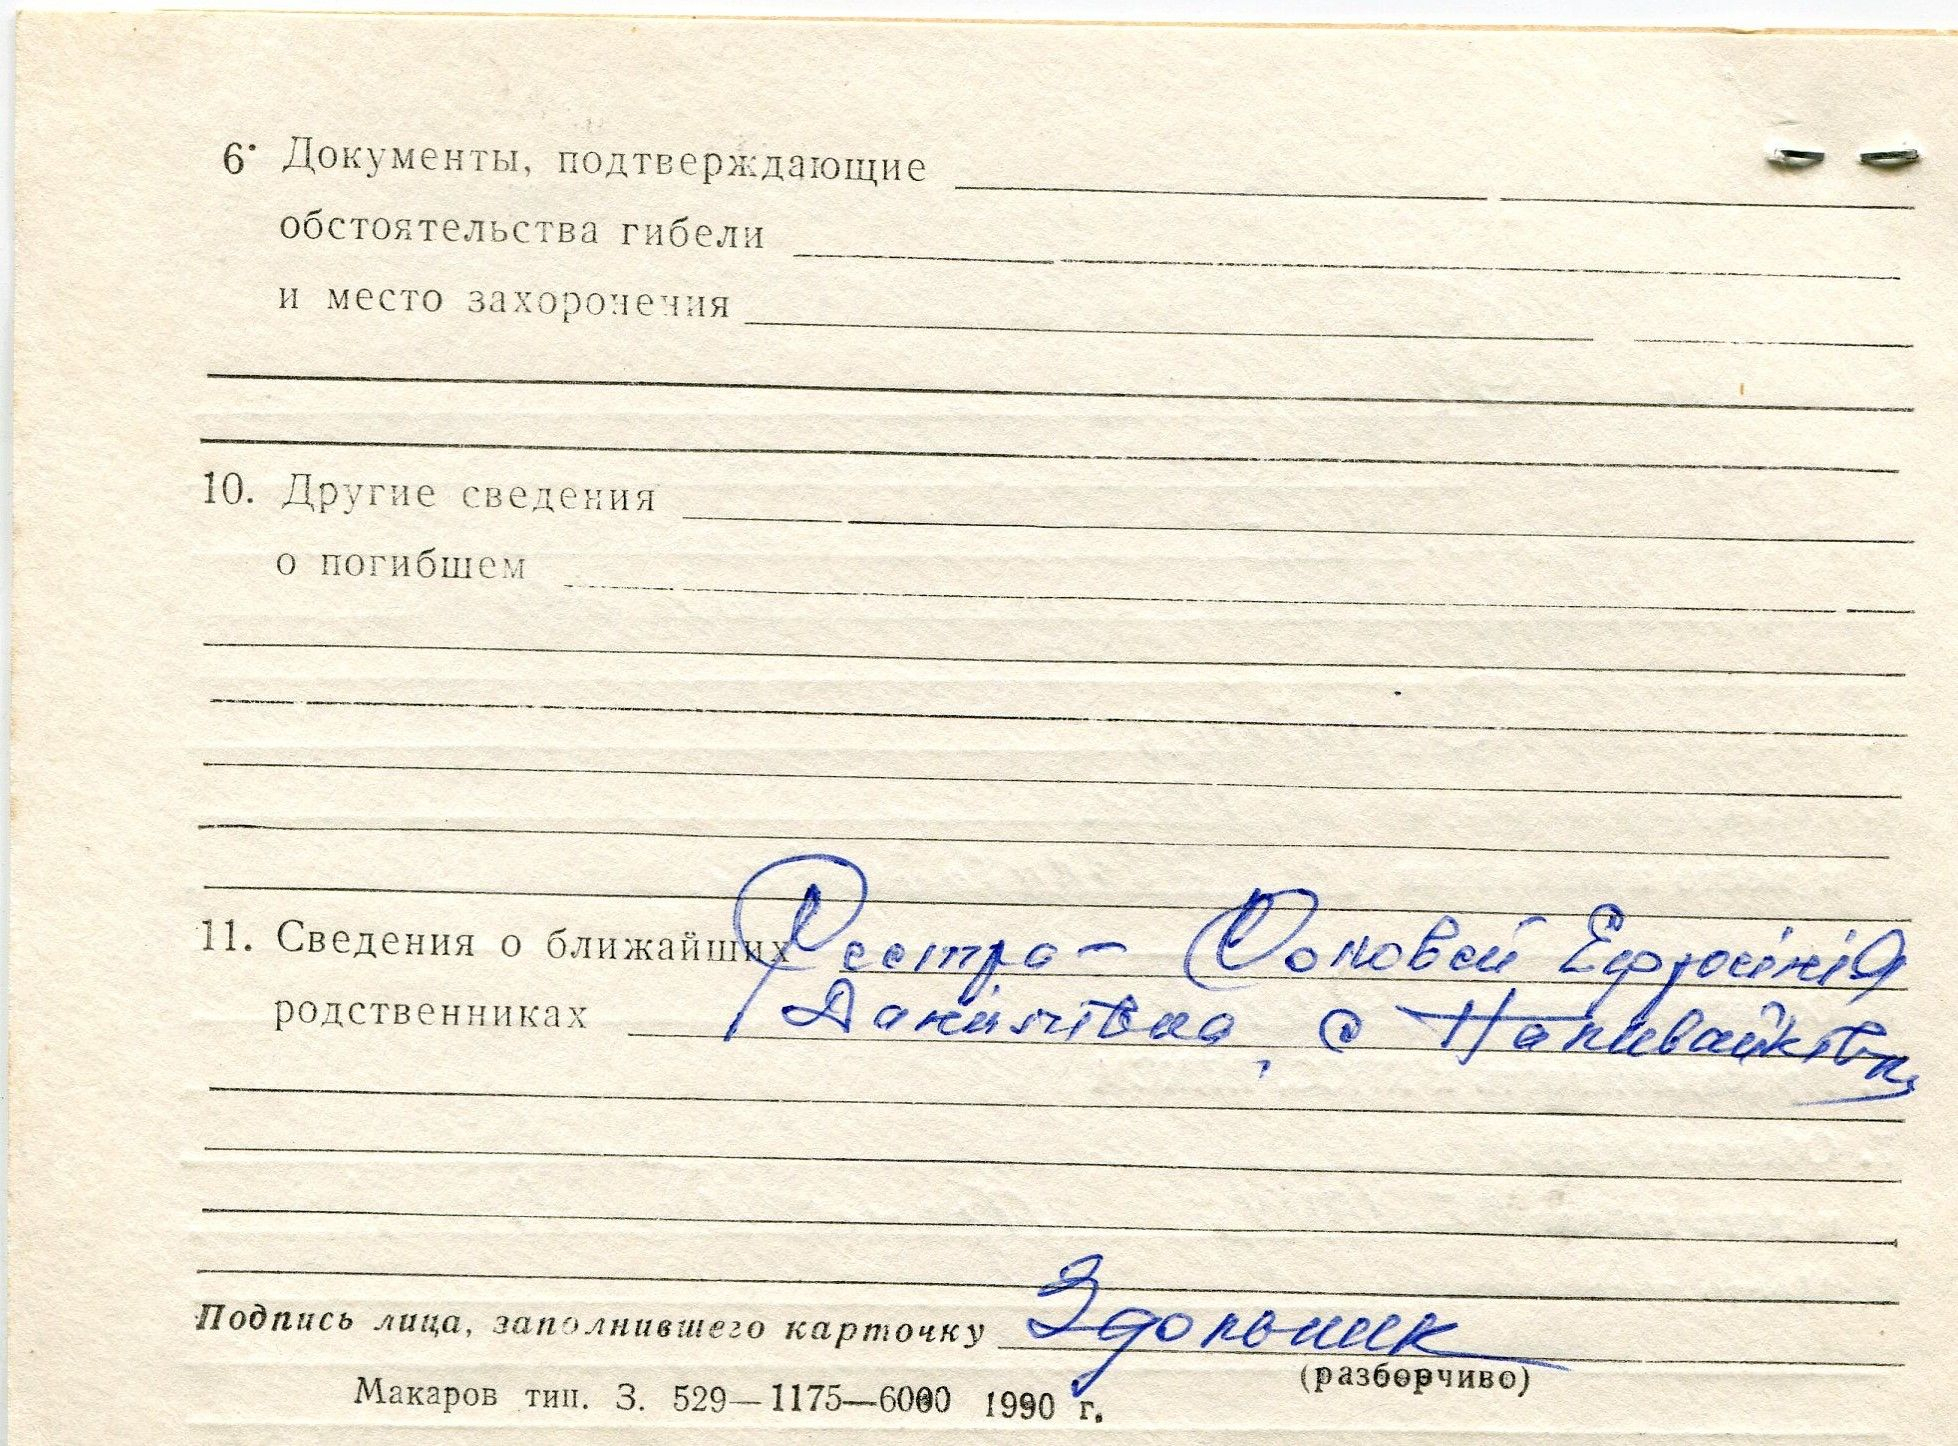 6. Документы, подтверждающие
обстоятельства гибели
и место захоронения
10. Другие сведения
о погибшем
11. Сведения о ближайших Сестра - Соловей Ефросінія
родственниках Данилівна, с Наливайківка
Подпись лица, заполнившего карточку Здольник
(разборчиво)
Макаров тип. З. 529—1175—6000 1990 г.